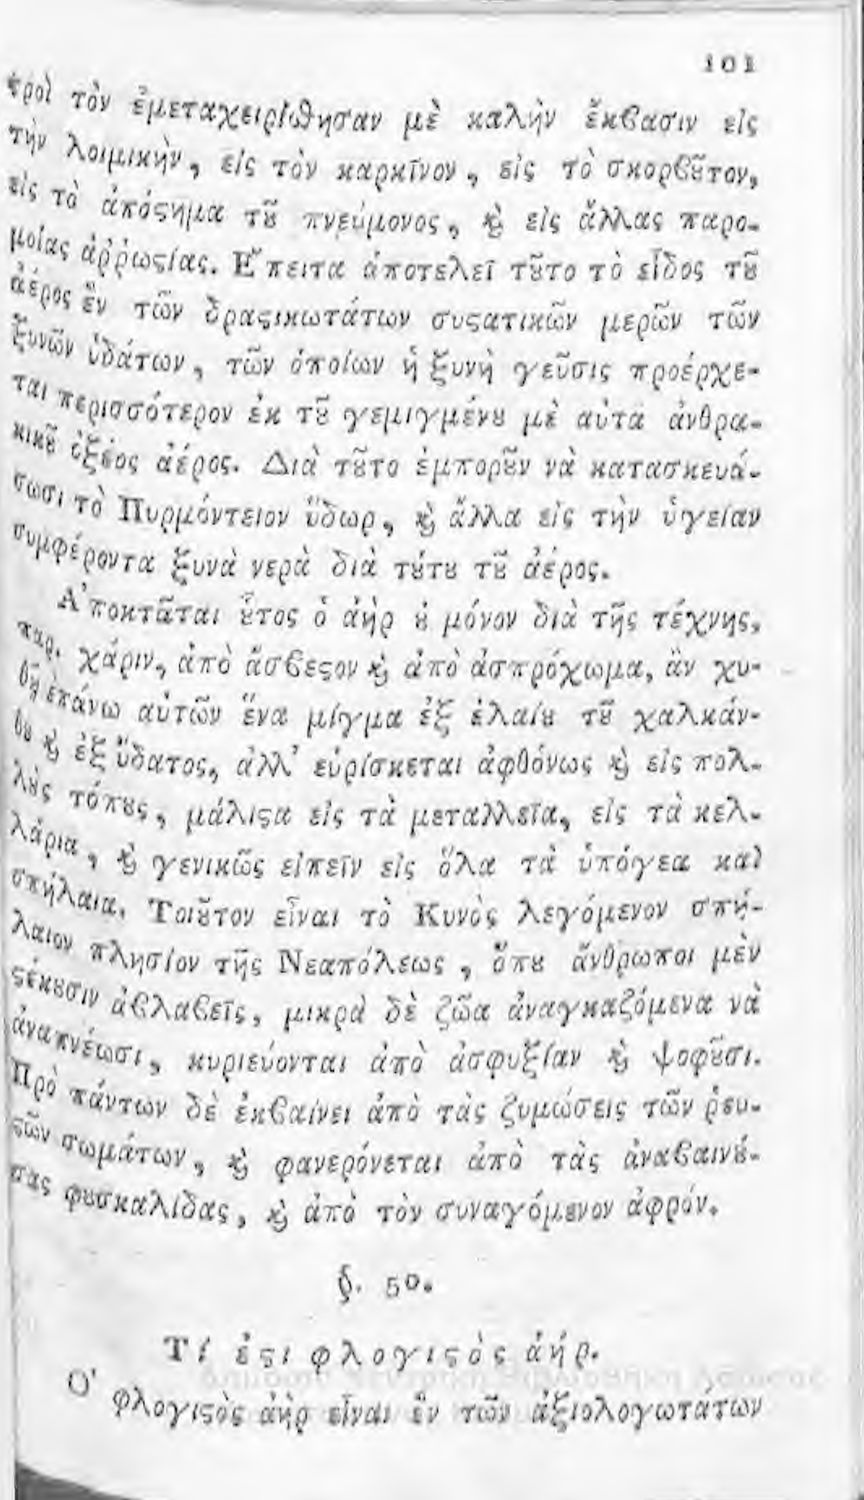 101
τροὶ τὸν ἐμεταχειρίσθησαν μὲ καλὴν ἔκβασιν εἰς
τὴν λοιμικὴν, εἰς τὸν καρκῖνον, εἰς τὸ σκορβȣ͂τον,
εἰς τὸ ἀπόϛημα τȣ͂ πνεύμονος, ϗ̀ εἰς ἄλλας παρο-
μοίας ἀῤῥωϛίας. Ἔπειτα ἀποτελεῖ τȣ͂το τὸ εἶδος τȣ͂
ἀέρος ἓν τῶν δραϛικωτάτων συϛατικῶν μερῶν τῶν
ξυνῶν ὑδάτων, τῶν ὁποίων ἡ ξυνὴ γεῦσις προέρχε-
ται περισσότερον ἐκ τȣ͂ γεμιγμένȣ μὲ αὐτὰ ἀνθρα-
κικȣ͂ ὀξέος ἀέρος. Διὰ τȣ͂το ἐμπορȣ͂ν νὰ κατασκευά-
σωσι τὸ Πυρμόντειον ὕδωρ, ϗ̀ ἄλλα εἰς τὴν ὑγείαν
συμφέροντα ξυνὰ νερὰ διὰ τȣ́τȣ τȣ͂ ἀέρος.
Ἀποκτᾶται ȣ̔͂τος ὁ ἀὴρ ȣ̓ μόνον διὰ τῆς τέχνης,
παρ. χάριν, ἀπὸ ἄσβεϛον ϗ̀ ἀπὸ ἀσπρόχωμα, ἂν χυ-
θῇ ἐπάνω αὐτῶν ἕνα μίγμα ἐξ ἐλαίȣ τȣ͂ χαλκάν-
θȣ ϗ̀ ἐξ ὕδατος, ἀλλ' εὑρίσκεται ἀφθόνως ϗ̀ εἰς πολ-
λȣ̀ς τόπȣς, μάλιϛα εἰς τὰ μεταλλεῖα, εἰς τὰ κελ-
λάρια, ϗ̀ γενικῶς εἰπεῖν εἰς ὅλα τὰ ὑπόγεα καὶ
σπήλαια. Τοιȣ͂τον εἶναι τὸ Κυνὸς λεγόμενον σπή-
λαιον πλησίον τῆς Νεαπόλεως, ὅπȣ ἄνθρωποι μὲν
ϛέκȣσιν ἀβλαβεῖς, μικρὰ δὲ ζῶα ἀναγκαζόμενα νὰ
ἀναπνέωσι, κυριεύονται ἀπὸ ἀσφυξίαν ϗ̀ ψοφȣ͂σι.
Πρὸ πάντων δὲ ἐκβαίνει ἀπὸ τὰς ζυμώσεις τῶν ῥευ-
ϛῶν σωμάτων, ϗ̀ φανερόνεται ἀπὸ τὰς ἀναβαινȣ́-
σας φȣσκαλίδας, ϗ̀ ἀπὸ τὸν συναγόμενον ἀφρόν.
§. 50.
Τί ἐϛι φλογιϛὸς ἀήρ.
Ὁ φλογιϛὸς ἀὴρ εἶναι ἓν τῶν ἀξιολογωτάτων